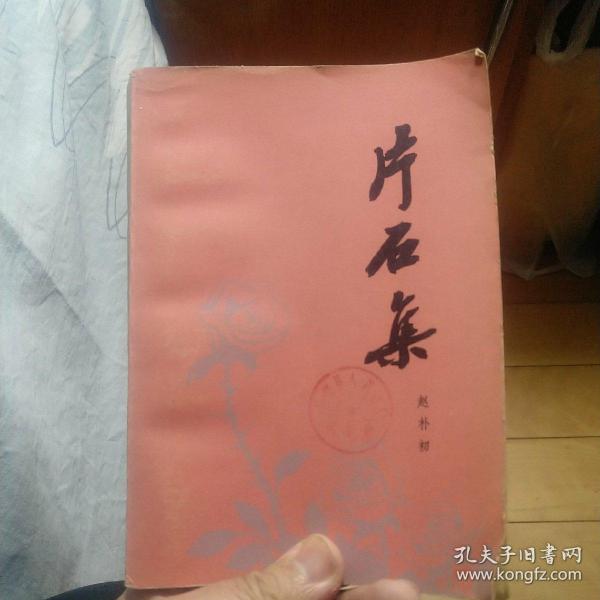 片石集
赵朴初
孔夫子旧书网
www.kongfz.com